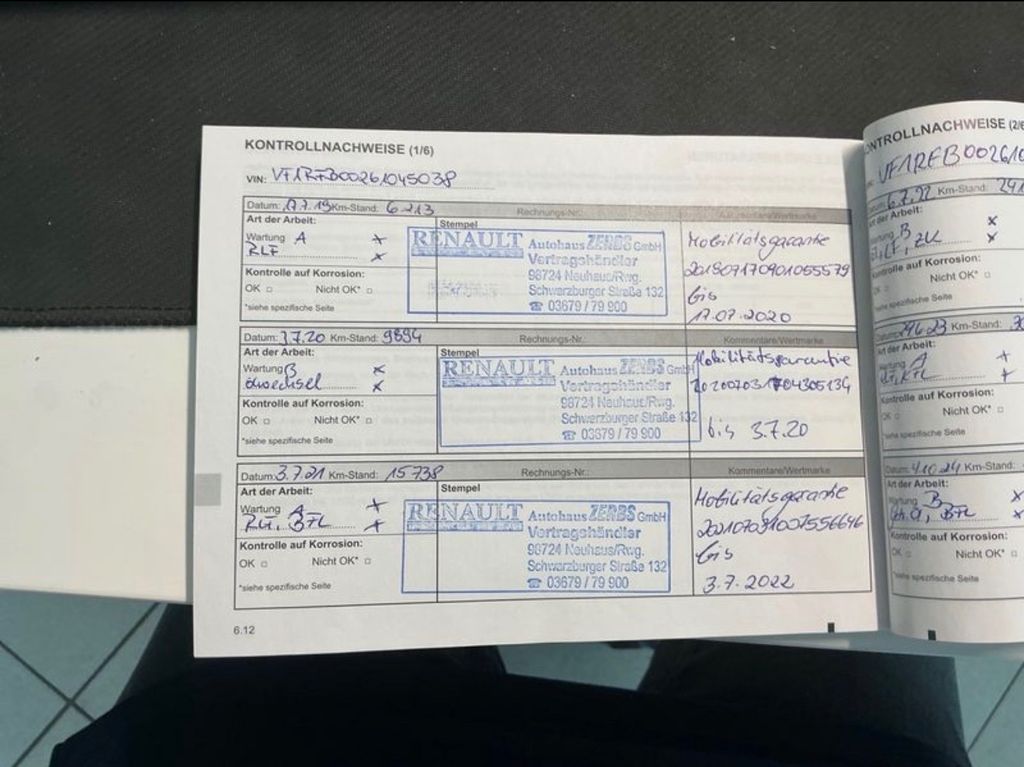 KONTROLLNACHWEISE (1/6)
VIN: VF1RFB00261045038
Datum: 17.7.19 Km-Stand: 6213 Rechnungs-Nr.:
Art der Arbeit:
Stempel
Wartung A x
RLF x
Kontrolle auf Korrosion:
OK □ Nicht OK* □
*siehe spezifische Seite
RENAULT Autohaus ZERBS GmbH
Vertragshändler
98724 Neuhaus/Rwg.
Schwarzburger Straße 132
☎ 03679 / 79 900
Mobilitätsgarantie
bis
17.07.2020
Datum: 3.7.20 Km-Stand: 9894 Rechnungs-Nr.: Kommentare/Wertmarke
Art der Arbeit:
Stempel
Wartung B x
x
Kontrolle auf Korrosion:
OK □ Nicht OK* □
*siehe spezifische Seite
RENAULT Autohaus ZERBS GmbH
Vertragshändler
98724 Neuhaus/Rwg.
Schwarzburger Straße 132
☎ 03679 / 79 900
Mobilitätsgarantie
bis 3.7.20
Datum: 3.7.21 Km-Stand: 15738 Rechnungs-Nr.: Kommentare/Wertmarke
Art der Arbeit:
Stempel
Wartung A x
RLF, BFL x
Kontrolle auf Korrosion:
OK □ Nicht OK* □
*siehe spezifische Seite
RENAULT Autohaus ZERBS GmbH
Vertragshändler
98724 Neuhaus/Rwg.
Schwarzburger Straße 132
☎ 03679 / 79 900
Mobilitätsgarantie
bis
3.7.2022
6.12
ONTROLLNACHWEISE (2/6
VF1RFB002610
Datum: 6.7.22 Km-Stand:
der Arbeit:
Wartung B x
x
Kontrolle auf Korrosion:
Nicht OK* □
spezifische Seite
Km-Stand:
Art der Arbeit:
Wartung A x
x
Kontrolle auf Korrosion:
OK □ Nicht OK* □
*siehe spezifische Seite
Datum: 4.10.24 Km-Stand:
Art der Arbeit:
Wartung B x
BFL x
Kontrolle auf Korrosion:
OK □ Nicht OK* □
*siehe spezifische Seite